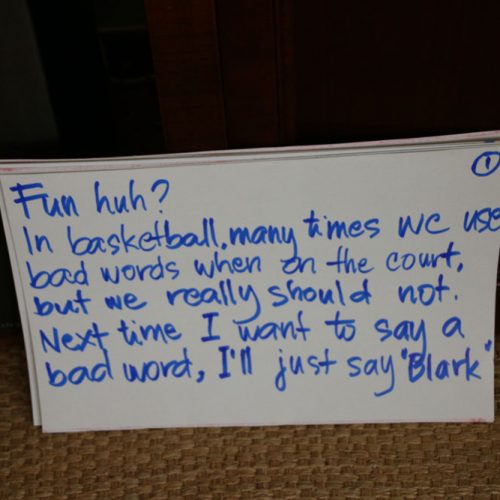 1
Fun huh?
In basketball, many times we use
bad words when on the court,
but we really should not.
Next time I want to say a
bad word, I'll just say "Blark"